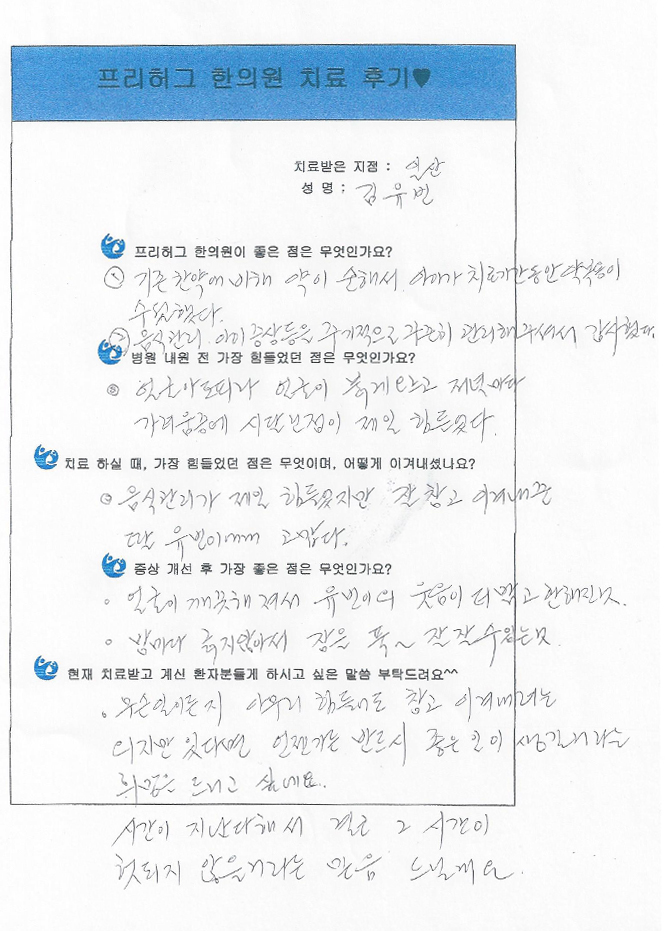 프리허그 한의원 치료 후기♥
치료받은 지점 : 일산
성 명 ; 김유빈
프리허그 한의원이 좋은 점은 무엇인가요?
① 기존 한약에 비해 약이 순해서 아이가 치료기간동안 약복용이
수월했다.
② 음식관리. 아이 증상등을 주기적으로 꾸준히 관리해주셔서 감사했다.
병원 내원 전 가장 힘들었던 점은 무엇인가요?
얼굴아토피라 얼굴이 붉게 되고 저녁마다
가려움증에 시달린점이 제일 힘들었다.
치료 하실 때, 가장 힘들었던 점은 무엇이며, 어떻게 이겨내셨나요?
음식관리가 제일 힘들었지만 잘 참고 이겨내준
딸 유빈이에게 고맙다.
증상 개선 후 가장 좋은 점은 무엇인가요?
얼굴이 깨끗해져서 유빈이의 웃음이 더 맑고 환해진것.
밤마다 긁지않아서 잠을 푹~ 잘 잘수있는것
현재 치료받고 계신 환자분들게 하시고 싶은 말씀 부탁드려요^^
무슨일이든지 아무리 힘들어도 참고 이겨내려는
의지만 있다면 언젠가는 반드시 좋은일이 생길거라는
희망을 드리고 싶네요.
시간이 지난다해서 결코 그 시간이
헛되지 않을거라는 만음 느낄게요.